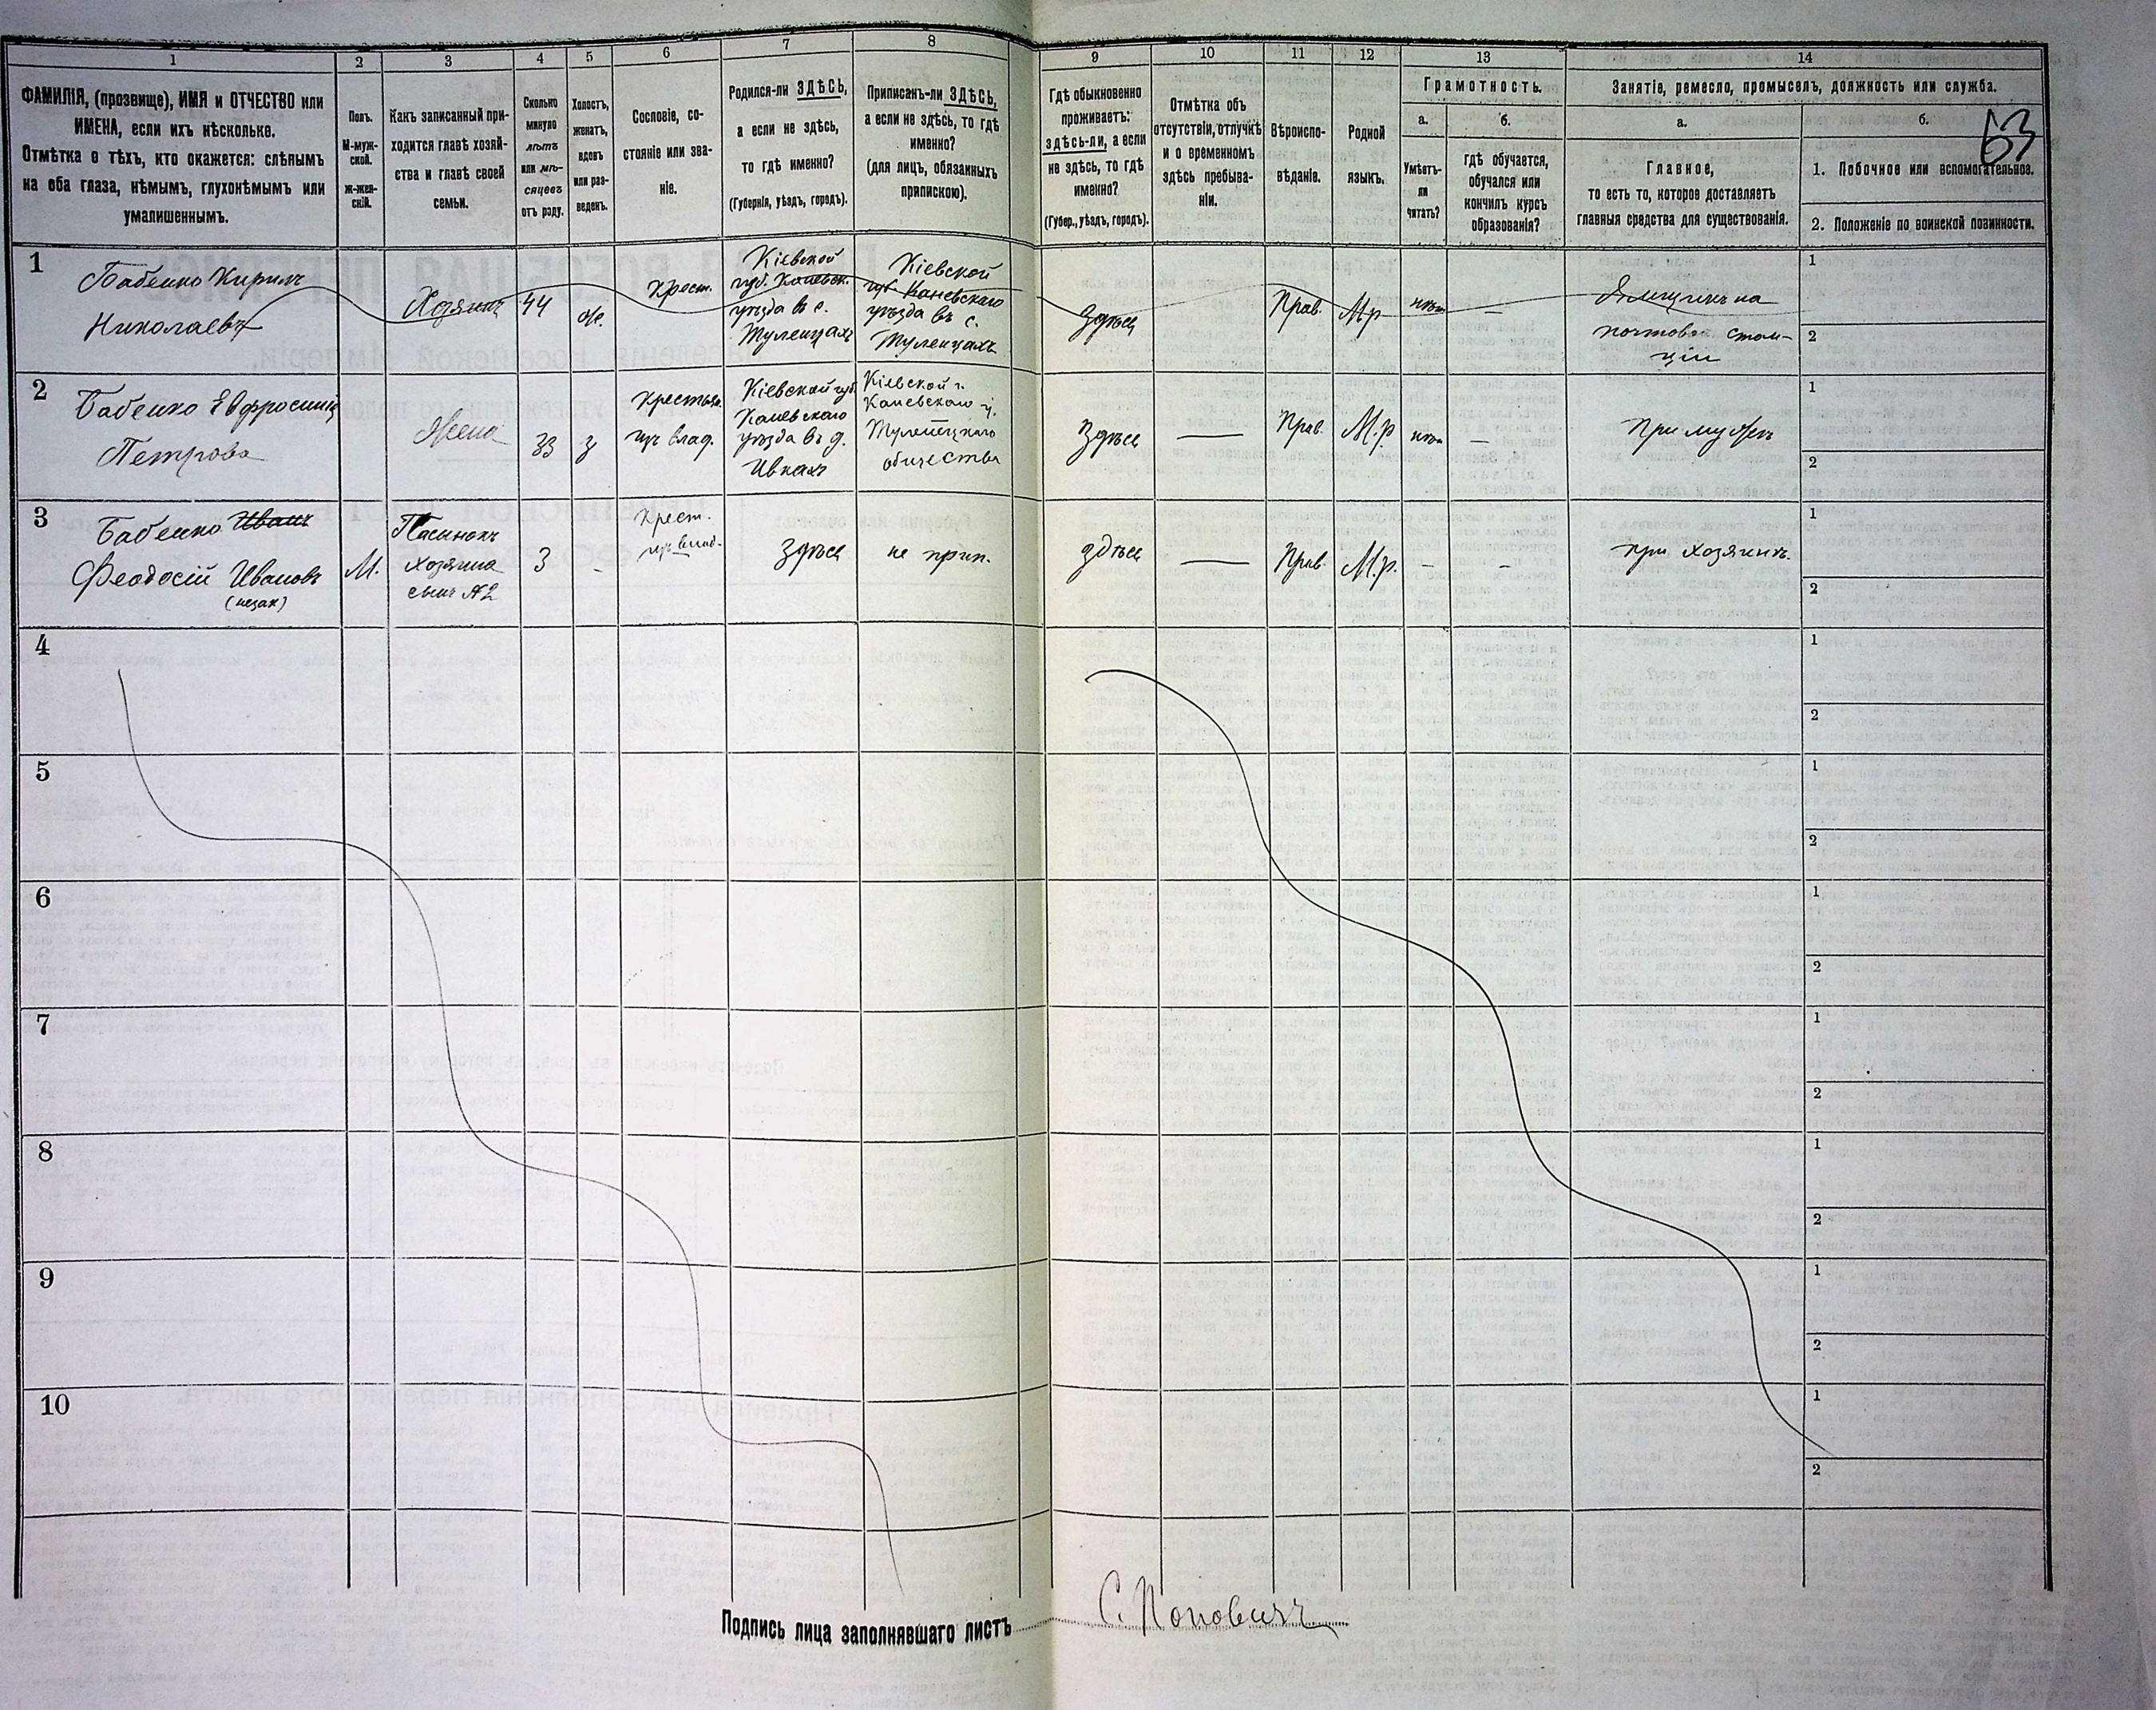 1
2
3
4
5
6
7
8
9
10
11
12
13
14
ФАМИЛІЯ, (прозвище), ИМЯ и ОТЧЕСТВО или
ИМЕНА, если ихъ нѣсколько.
Отмѣтка о тѣхъ, кто окажется: слѣпымъ
на оба глаза, нѣмымъ, глухонѣмымъ или
умалишеннымъ.
Полъ.
М-муж-
ской.
ж-жен-
скій.
Какъ записанный при-
ходится главѣ хозяй-
ства и главѣ своей
семьи.
Сколько
минуло
лѣтъ
или мѣ-
сяцевъ
отъ роду.
Холостъ,
женатъ,
вдовъ
или раз-
веденъ.
Сословіе, со-
стояніе или зва-
ніе.
Родился-ли ЗДѢСЬ,
а если не здѣсь,
то гдѣ именно?
(Губернія, уѣздъ, городъ).
Приписанъ-ли ЗДѢСЬ,
а если не здѣсь, то гдѣ
именно?
(для лицъ, обязанныхъ
припискою).
Гдѣ обыкновенно
проживаетъ:
здѣсь-ли, а если
не здѣсь, то гдѣ
именно?
(Губер., уѣздъ, городъ).
Отмѣтка объ
отсутствіи, отлучкѣ
и о временномъ
здѣсь пребыва-
ніи.
Вѣроиспо-
вѣданіе.
Родной
языкъ.
Грамотность.
а.
Умѣетъ-
ли
читать?
б.
гдѣ обучается,
обучался или
кончилъ курсъ
образованія?
Занятіе, ремесло, промыселъ, должность или служба.
а.
Главное,
то есть то, которое доставляетъ
главныя средства для существованія.
б.
63
1. Побочное или вспомогательное.
2. Положеніе по воинской повинности.
1
Бабенко Кирилъ
Николаевъ
Хозяинъ
44
ж.
Крест.
Кіевской
губ. Каневск.
уѣзда в с.
Тулепцахъ
Кіевской
губ Каневскаго
уѣзда въ с.
Тулепцахъ
Здѣсь
Прав.
Мр
нѣт
—
Ямщикъ на
почтовой стан-
ціи
1
2
2
Бабенко Евфросинія
Петрова
Жена
33
з
Крестьян.
изъ влад.
Кіевской губ.
Каневскаго
уѣзда въ д.
Ивкахъ
Кіевской г.
Каневскаго у.
Тулепецкаго
общества
Здѣсь
—
Прав.
М.р
нѣт
—
При мужѣ
1
2
3
Бабенко Иванъ
Феодосій Ивановъ
(незак)
М.
Пасынокъ
хозяина
сынъ №2
3
-
Крест.
изъ влад.
Здѣсь
не прип.
здѣсь
—
Прав.
М.р.
-
-
при хозяинѣ.
1
2
4
1
2
5
1
2
6
1
2
7
1
2
8
1
2
9
1
2
10
1
2
Подпись лица заполнявшаго листъ
С. Поповичъ